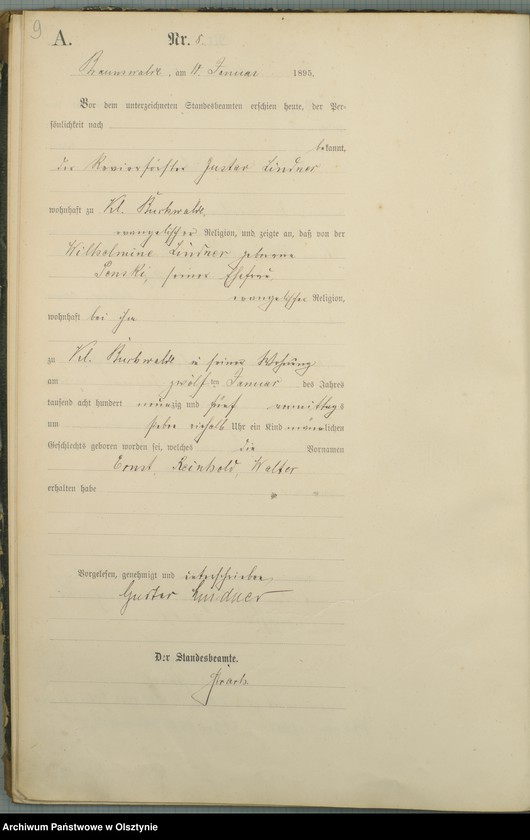 9
A.
Nr. 8.
Braunswalde, am 18. Januar 1895.
Vor dem unterzeichneten Standesbeamten erschien heute, der Per-
sönlichkeit nach
bekannt,
der Revierförster Gustav Lindner
wohnhaft zu Kl. Buchwalde,
evangelischer Religion, und zeigte an, daß von der
Wilhelmine Lindner geborene
seiner Ehefrau,
evangelischer Religion,
wohnhaft bei ihm
zu Kl. Buchwalde in seiner Wohnung
am zwölften Januar des Jahres
tausend acht hundert neunzig und fünf vormittags
um sieben einhalb Uhr ein Kind männlichen
Geschlechts geboren worden sei, welches die Vornamen
Ernst, Reinhold, Walter
erhalten habe
Vorgelesen, genehmigt und unterschrieben
Gustav Lindner
Der Standesbeamte.
Archiwum Państwowe w Olsztynie